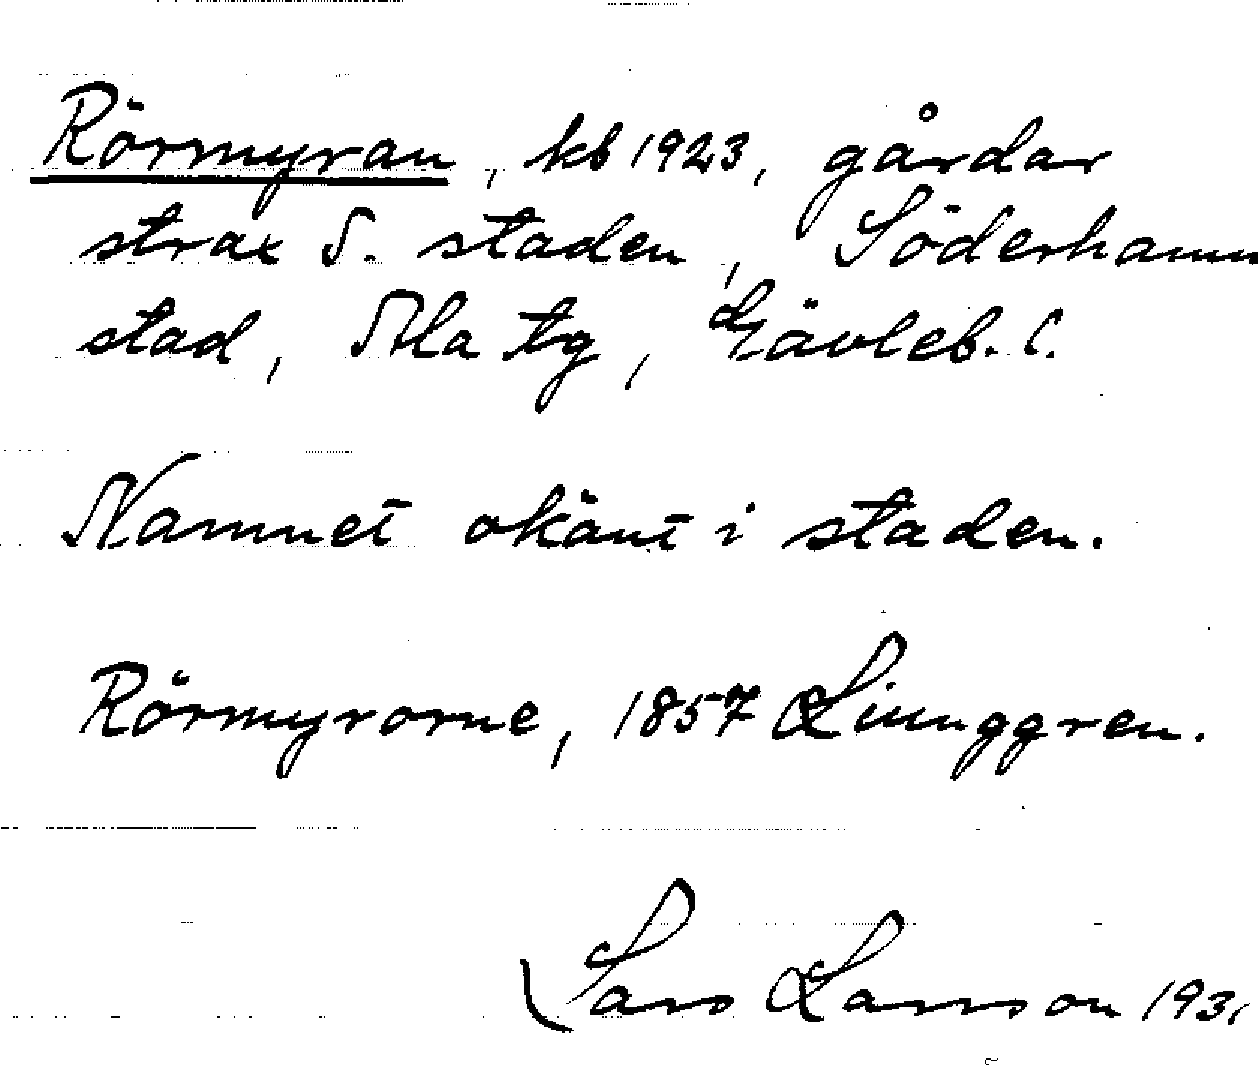 Rörmyran, kb 1923, gårdar
strax S. staden, Söderhamn
stad, Ala tg, Gävleb. l.
Namnet okänt i staden.
Rörmyrorne, 1857 Ljunggren.
Lars Larsson 1931